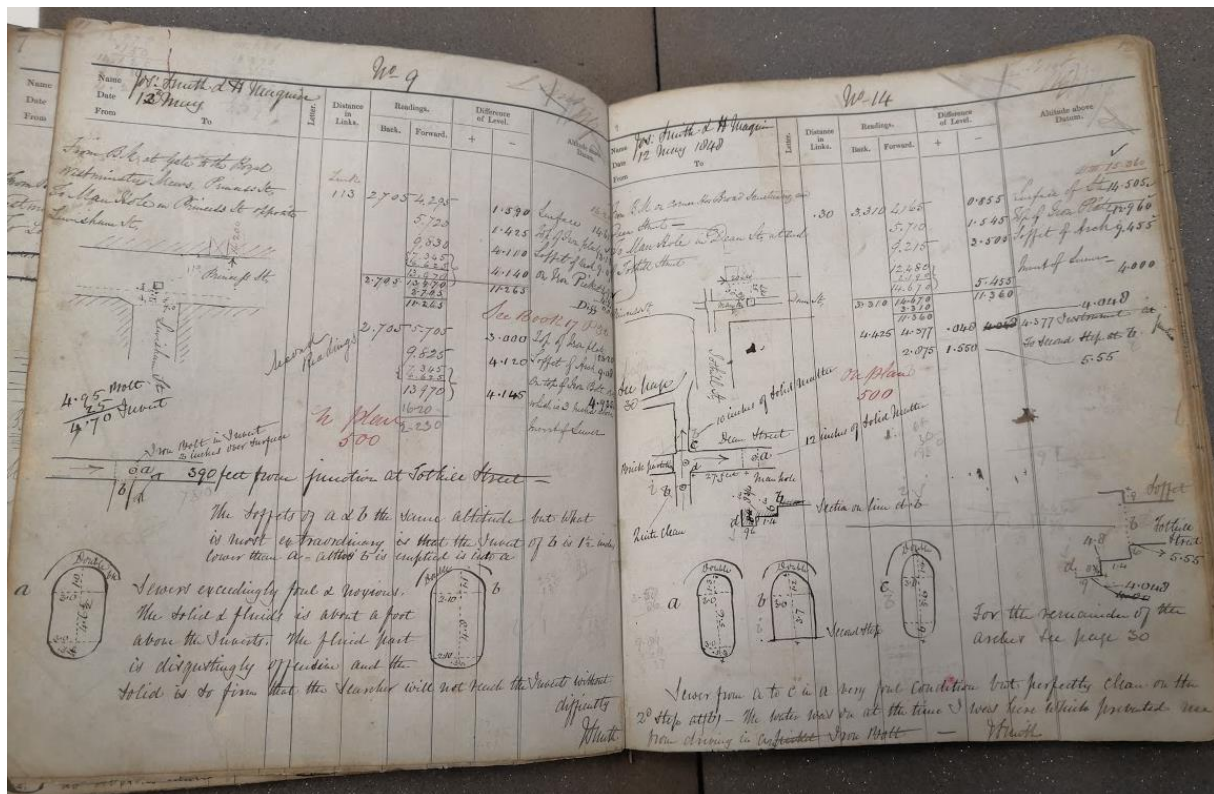 No 9
Name Jos: Smith & H Maquin
Date 12 May
From To
Letter. Distance in Links. Readings. Back. Forward. Difference of Level. + − Altitude above Datum.
From B.M. at Gate to the Royal
Westminster Mews, Princess St,
To Man Hole in Princes St opposite
Lewisham St,
Links
113 2.705 4.295 1.590 Surface
5.725 1.425 Top of Iron plate
9.830 4.110 Soffet of Arch
7.345
6.625
13.970 4.140 on Iron
2.705 13.970 11.265
2.705
11.265
See Book 17
Princess St.
Lewisham St.
Second Readings
2.705 5.705 3.000 Top of Iron plate
9.825 4.120 Soffet of Arch
7.345
6.625
13970 4.145 on top of Iron Bolt
16.20
2.230 Invert of Sewer
4.95 Bolt
25
4.70 Invert
In Plan
500
Iron Bolt in Invert
3 inches over Surface
a
390 feet from junction at Tothill Street —
b d
The Soffets of a & b the same altitude but what
is most extraordinary is that the Invert of b is 1½ inches
lower than a — altho b is emptied is into a
a Double
Double b
Sewers exceedingly foul & noxious.
The Solid & fluids is about a foot
above the Inverts. The fluid part
is disgustingly offensive and the
Solid is so firm that the Searcher will not reach the Invert without
difficulty
J Smith
No 14
Name Jos: Smith & H Maquin
Date 12 May 1848
From To
Letter. Distance in Links. Readings. Back. Forward. Difference of Level. + − Altitude above Datum.
15.360
From B.M. on Corner Broad Sanctuary on
Dean Street —
To Man Hole in Dean St, at end
Tothill Street
.30 3.310 4.165 0.855 Surface of St 14.505
5.710 1.545 Top of Iron Plate 12.960
9.215 3.505 Soffet of Arch 9.455
12.485
14.670 5.455 Invert of Sewer — 4.000
3.310 14.670 11.360
3.310
11.360
4.425 4.377 .048 4.048 4.377 Instrument at
2.875 1.550 To Second Step at b
5.55
On Plan
500
Tothill St,
See page
30
10 inches of Solid Matter
c
Dean Street
12 inches of Solid Matter
a
d
b
27.5
Man hole
Section on line d-b
Quite Clean
d
b
Soffet
b
Tothill
Street
5.55
4.8
d
1.4
4.048
a Double
b Double
c Double
Second Step
For the remainder of the
arches See page 30
Sewer from a to c in a very foul condition but perfectly clean on the
2d Step at (b) — The water was on at the time I was here which prevented me
from driving in a Iron Bolt — J Smith